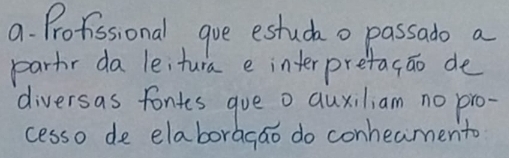 a- Profissional que estuda o passado a
partir da leitura e interpretação de
diversas fontes que o auxiliam no pro-
cesso de elaboração do conhecimento.